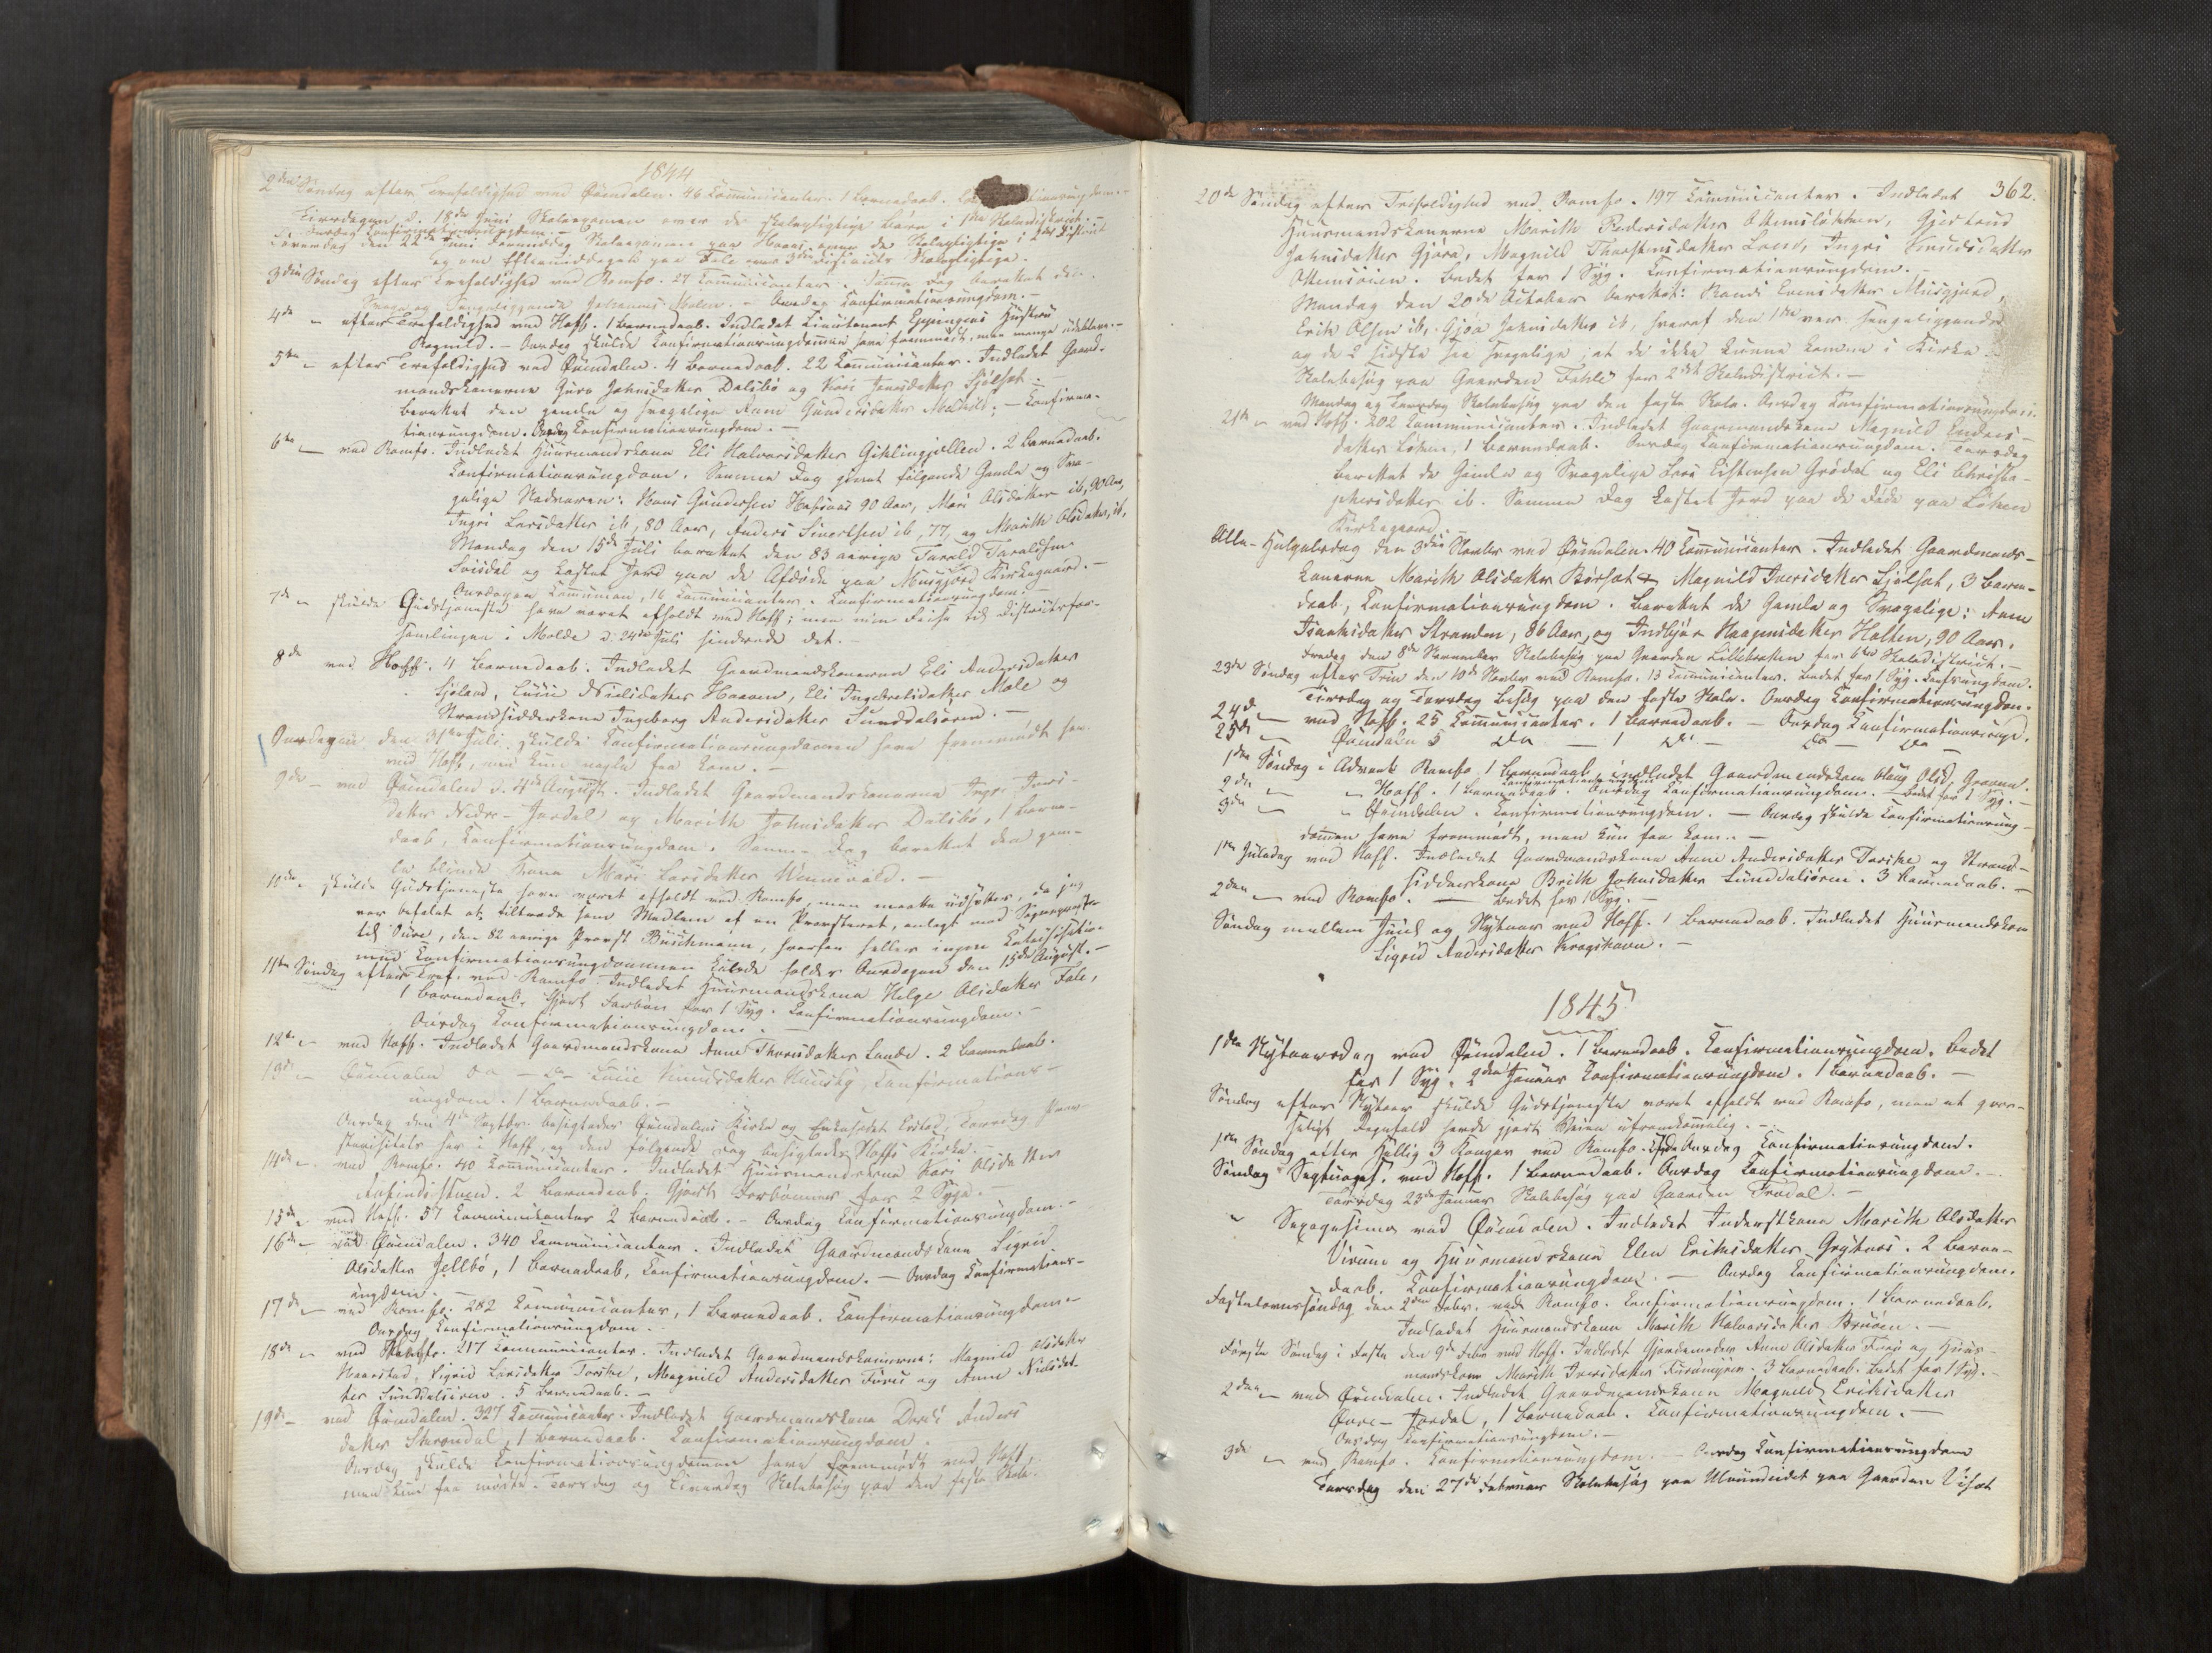 1844
2den Søndag efter Trefoldighed ved Øxendalen. 46 Communicanter. 1 Barnedaab.
Tirsdagen d. 18de Juni Skoleexamen over de skolepligtige Børn i 1ste Skoledistrict. -
Onsdag Confirmationsungdom. -
Løverdag den 22de Juni Formiddag Skoleexamen paa Hoaas over de Skolepligtige i 2det District
og om Eftermiddagen paa Fale over 3die Districts Skolepligtige.
3die Søndag efter Trefoldighed ved Romfo. 27 Communicanter. Samme Dag berettet den
svage og sengeliggende Johannes Molen. - Onsdag Confirmationsungdom. -
4de - efter Trefoldighed ved Hoff. 1 Barnedaab. Indledet Lieutenant Eppingens Hustru
Magnild. - Onsdag skulde Confirmationsungdommen have fremmødt, men mange udebleve. -
5te - efter Trefoldighed ved Øxendalen. 4 Barnedaab. 22 Communicanter. Indledet Gaard-
mandskonerne Guro Johnsdatter Dalsbø og Kari Jonsdatter Sjølset.
Berettet den gamle og svagelige Anne Gundersdatter - Confirma-
tionsungdom. Onsdag Confirmationsungdom. -
6te - ved Romfo. Indledet Huusmandskone Eli Halvorsdatter Giklingjellen. 2 Barnedaab.
Confirmationsungdom. Samme Dag givet følgende Gamle og Sva-
gelige Nadveren: Hans Gundersen Hafsaas 90 Aar, Mari Olsdatter ib, 90 Aar,
Ingri Larsdatter ib, 80 Aar, Anders Sivertsen ib, 77, og Marith Olsdatter, ib,
Mandag den 15de Juli berettet den 83 aarige Tarald Taraldsen
Loisdal og kastet Jord paa de Afdøde paa Musgjerd Kirkegaard. -
Onsdagen Communion, 16 Communicanter. Confirmationsungdom. -
7de - skulde Gudstjeneste have været afholdt ved Hoff; men min Reise til Districtsfor-
samlingen i Molde d. 24de Juli hindrede det. -
8de ved Hoff. 4 Barnedaab. Indledet Gaardmandskonerne Eli Andersdatter
Sjøland, Lussie Nielsdatter Hoaven, Eli Ingebretsdatter Mæle og
Strandsidderkone Ingeborg Andersdatter Sunddalsøren. -
Onsdagen den 31te Juli skulde Confirmationsungdommen have fremmødt her
ved Hoff, men kun nogle faa kom. -
9de - ved Øxendalen d. 4de August. Indledet Gaardmandskonerne Ingr. Iver-
datter Nedre-Jordal og Marith Johnsdatter Dalsbø, 1 Barne-
daab, Confirmationsungdom. Samme Dag berettet den gam-
le blinde Kone Mari Larsdatter Wennevold. -
10de - skulde Gudstjeneste have været afholdt ved Romfo, men maatte udsættes, da jeg
var befalet at tiltræde som Medlem af en Provsteret, anlagt mod Sognepræsten
til Oure, den 82 aarige Provst Buschmann, hvorfor heller ingen Catechisation
med Confirmationsungdommen kunde holdes Onsdagen den 15de August. -
11te Søndag efter Tref. ved Romfo. Indledet Huusmandskone Helge Olsdatter Fale,
1 Barnedaab. Gjort Forbøn for 1 Syg. Confirmationsungdom. -
Onsdag Confirmationsungdom. -
12te - ved Hoff. Indledet Gaardmandskone Anne Thoresdatter Lande. 2 Barnedaab.
13de - Øxendalen do - do - Lussie Knudsdatter Huusby, Confirmations-
ungdom. 1 Barnedaab. -
Onsdag den 4de Septbr. besigtedes Øxendalens Kirke og Enkesædet Ersted, Torsdag Prov-
stevisitats her i Hoff, og den følgende Dag besigtedes Hoffs Kirke. -
14de - ved Romfo. 40 Communicanter. Indledet Huusmandskone Kari Olsdatter
Anfindsstuen. 2 Barnedaab. Gjort Forbønner for 2 Syge. -
15de - ved Hoff. 57 Communicanter 2 Barnedaab. - Onsdag Confirmationsungdom. -
16de - ved Øxendalen. 340 Communicanter. Indledet Gaardmandskone Sigrid
Olsdatter Jellbø, 1 Barnedaab, Confirmationsungdom. - Onsdag Confirmations-
ungdom. -
17de - ved Romfo. 282 Communicanter, 1 Barnedaab. Confirmationsungdom. -
Onsdag Confirmationsungdom. -
18de - ved 217 Communicanter. Indledet Gaardmandskonerne: Magnild Olsdatter
Haarstad, Sigrid Larsdatter Torske, Magnild Andersdatter Furu og Anne Nielsdat-
ter Sunddalsøren. 5 Barnedaab. -
19de - ved Øxendalen. 327 Communicanter. Indledet Gaardmandskone Dordi Anders
datter Storøndal, 1 Barnedaab. Confirmationsungdom.
Onsdag skulde Confirmationsungdommen have fremmødt ved Hoff,
men kun faa mødte. Torsdag og Løverdag Skolebesøg paa den faste Skole.
362.
20de Søndag efter Trefoldighed ved Romfo. 197 Communicanter. Indledet
Huusmandskonerne Marith Pedersdatter Ottemsløkken, Gjertrud
Johnsdatter Gjøra, Magnild Thorstensdatter Loend, Ingri Knudsdatter
Ottemsøien. Bedet for 1 Syg. Confirmationsungdom. -
Mandag den 20de October berettet: Randi Evensdatter Musgjerd,
Erik Olsen ib, Gjøa Johnsdatter ib, hvoraf den 1ste var sengeliggende
og de 2 sidste saa svagelige, at de ikke kunne komme i Kirke.
Skolebesøg paa Gaarden Fahle for 2det Skoledistrict. -
Mandag og Torsdag Skolebesøg paa den faste Skole. Onsdag Confirmationsungdom.
21de - ved Hoff. 202 Communicanter. Indledet Gaarmandskone Magnild Enders-
datter Løken, 1 Barnedaab. Onsdag Confirmationsungdom. Torsdag
berettet de Gamle og Svagelige Lars Eistensen Grødal og Eli Christo-
phersdatter ib. Samme Dag kastet Jord paa de Døde paa Løken
Kirkegaard. -
Alle-Helgelsdag den 3die Novbr ved Øxendalen. 40 Communicanter. Indledet Gaardmands-
konerne Marith Olsdatter Børset & Magnild Iversdatter Sjølset, 3 Barne-
daab, Confirmationsungdom. Berettet de Gamle og Svagelige: Anne
Isaaksdatter Stranden, 86 Aar, og Indbjør Haagensdatter Holten, 90 Aar.
Fredag den 8de November Skolebesøg paa Gaarden Lilleboken for 6te Skoledistrict. -
23de Søndag efter Trin den 10de Novbr ved Romfo. 13 Communicanter. Bedet for 1 Syg. Confsungdom.
Tirsdag og Torsdag Besøg paa den faste Skole. Onsdag Confirmationsungdom.
24de - ved Hoff. 25 Communicanter. 1 Barnedaab. - Onsdag Confirmationsungd.
25de - Øxendalen 5 do - 1 do - do - do -
1ste Søndag i Advent Romfo 1 Barnedaab, indledet Gaardmandskone Olsd. Grøvne.
Confirmationsungdom
2den - - Hoff. 1 Barnedaab. Onsdag Confirmationsungdom. - Bedet for 1 Syg. -
3die - - Øxendalen. Confirmationsungdom. - Onsdag skulde Confirmationsung-
dommen have fremmødt, men kun faa kom. -
1ste Juledag ved Hoff. Indledet Gaardmandskone Anne Andersdatter Torske og Strand-
sidderkone Brith Johnsdatter Sunddalsøren. 3 Barnedaab. -
2den - ved Romfo. - Bedet for 1 Syg. -
Søndag mellem Juul og Nytaar ved Hoff. 1 Barnedaab. Indledet Huusmandskone
Sigrid Andersdatter Krogshavn. -
1845
1ste Nytaarsdag ved Øxendalen. 1 Barnedaab. Confirmationsungdom. Bedet
for 1 Syg. 2den Januar Confirmationsungdom. 1 Barnedaab. -
Søndag efter Nytaar skulde Gudstjeneste været afholdt ved Romfo, men et gyse-
ligt Regnfald havde gjort Veien ufremkommelig. -
1ste Søndag efter Hellig 3 Konger ved Romfo. Onsdag Confirmationsungdom.
Søndag Septuages. ved Hoff. 1 Barnedaab. Onsdag Confirmationsungdom.
Torsdag 23de Januar Skolebesøg paa Gaarden Trædal. -
" Sexagesima ved Øxendalen. Indledet Inderstkone Marith Olsdatter
Virum og Huusmandskone Elen Eriksdatter Grytnes. 2 Barne-
daab. Confirmationsungdom. - Onsdag Confirmationsungdom.
Fastelavnssøndag den 2den Febr. ved Romfo. Confirmationsungdom. 1 Barnedaab.
Indledet Huusmandskone Marith Halvorsdatter Bruøien. -
Første Søndag i Faste den 9de Febr ved Hoff. Indledet Gjordemoder Anne Olsdatter Furu og Huus-
mandskone Marith Iversdatter Furumyren. 3 Barnedaab. Bedet for 1 Syg. -
2den - ved Øxendalen. Indledet Gaardmandskone Magnild Eriksdatter
Øvre-Jordal, 1 Barnedaab. Confirmationsungdom. -
Onsdag Confirmationsungdom. -
3die - ved Romfo. Confirmationsungdom. - Onsdag Confirmationsungdom
Torsdag den 27de Februar Skolebesøg paa Ulvundeidet paa Gaarden Viset